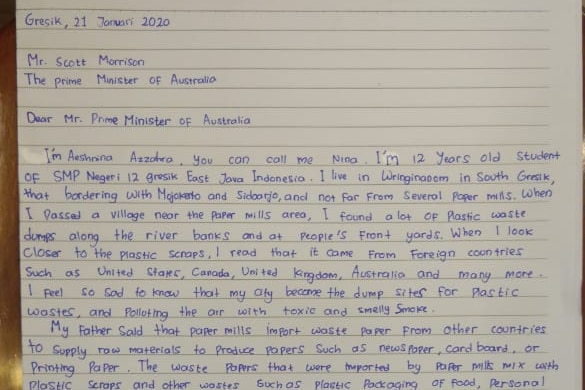 Gresik, 21 Januari 2020
Mr. Scott Morrison
The prime Minister of Australia
Dear Mr. Prime Minister of Australia
I'm Aeshnina Azzahra, you can call me Nina. I'm 12 Years old student
of SMP Negeri 12 gresik East Java Indonesia. I live in Wringinanom in South Gresik,
that bordering with Mojokerto and Sidoarjo, and not far from several paper mills. When
I passed a village near the paper mills area, I found a lot of plastic waste
dumps along the river banks and at people's front yards. When I look
closer to the plastic scraps, I read that it came from foreign countries
such as United States, Canada, United Kingdom, Australia and many more.
I feel so sad to know that my city become the dump sites for plastic
wastes, and polloting the air with toxic and smelly smoke.
My father said that paper mills import waste paper from other countries
to supply raw materials to produce papers such as newspaper, cardboard, or
printing paper. The waste papers that were imported by paper mills mix with
plastic scraps and other wastes such as plastic packaging of food, personal